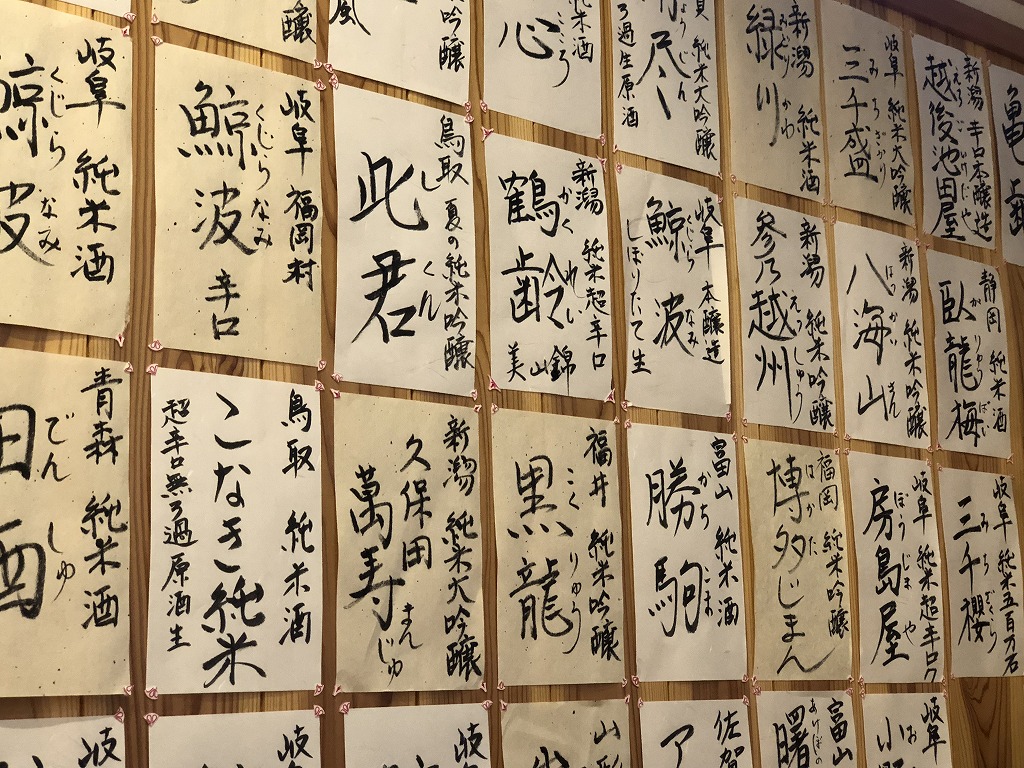 岐阜 純米酒
鯨波
くじらなみ
岐阜 福岡村
鯨波 辛口
くじらなみ
鳥取 夏の純米吟醸
此君
しくん
新潟 純米超辛口
鶴齢
かくれい
美山錦
岐阜 本醸造
鯨波
くじらなみ
しぼりたて生
純米酒
心
こころ
純米大吟醸
ろ過生原酒
新潟 純米酒
緑川
みどりかわ
岐阜 純米大吟醸
三千盛
みちざかり
新潟 辛口本醸造
越後池田屋
えちごいけだや
亀齢
新潟 純米吟醸
参乃越州
えっしゅう
新潟 純米吟醸
八海山
はっかいさん
静岡 純米酒
臥龍梅
がりゅうばい
青森 純米酒
田酒
でんしゅ
鳥取 純米酒
こなき純米
超辛口無ろ過原酒生
新潟 純米大吟醸
久保田
萬寿
まんじゅ
福井 純米吟醸
黒龍
こくりゅう
富山 純米酒
勝駒
かちこま
福岡 純米吟醸
博多じまん
はかた
岐阜 純米超辛口
房島屋
ぼうじまや
岐阜 純米五百万石
三千櫻
みちざくら
岐
岐
岐
山形
佐賀
ア
富山
曙
あけぼの
岐阜
小
お
吟醸
醸
風